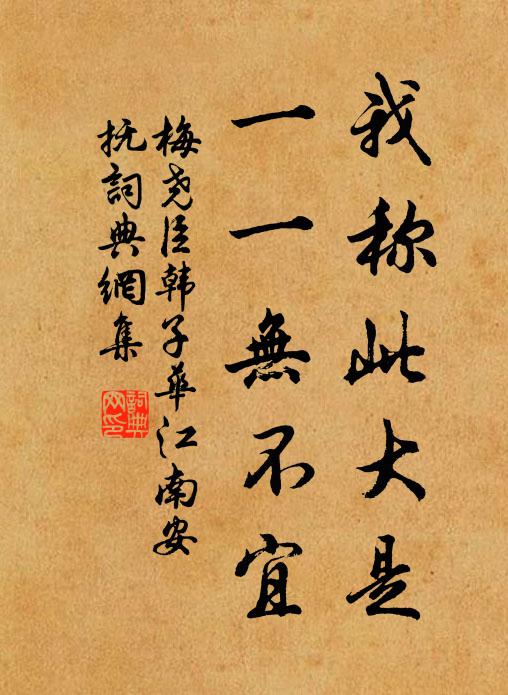 我称此大是
一一無不宜
梅尧臣韩子華江南安
抚詞典網集
詞典
网印